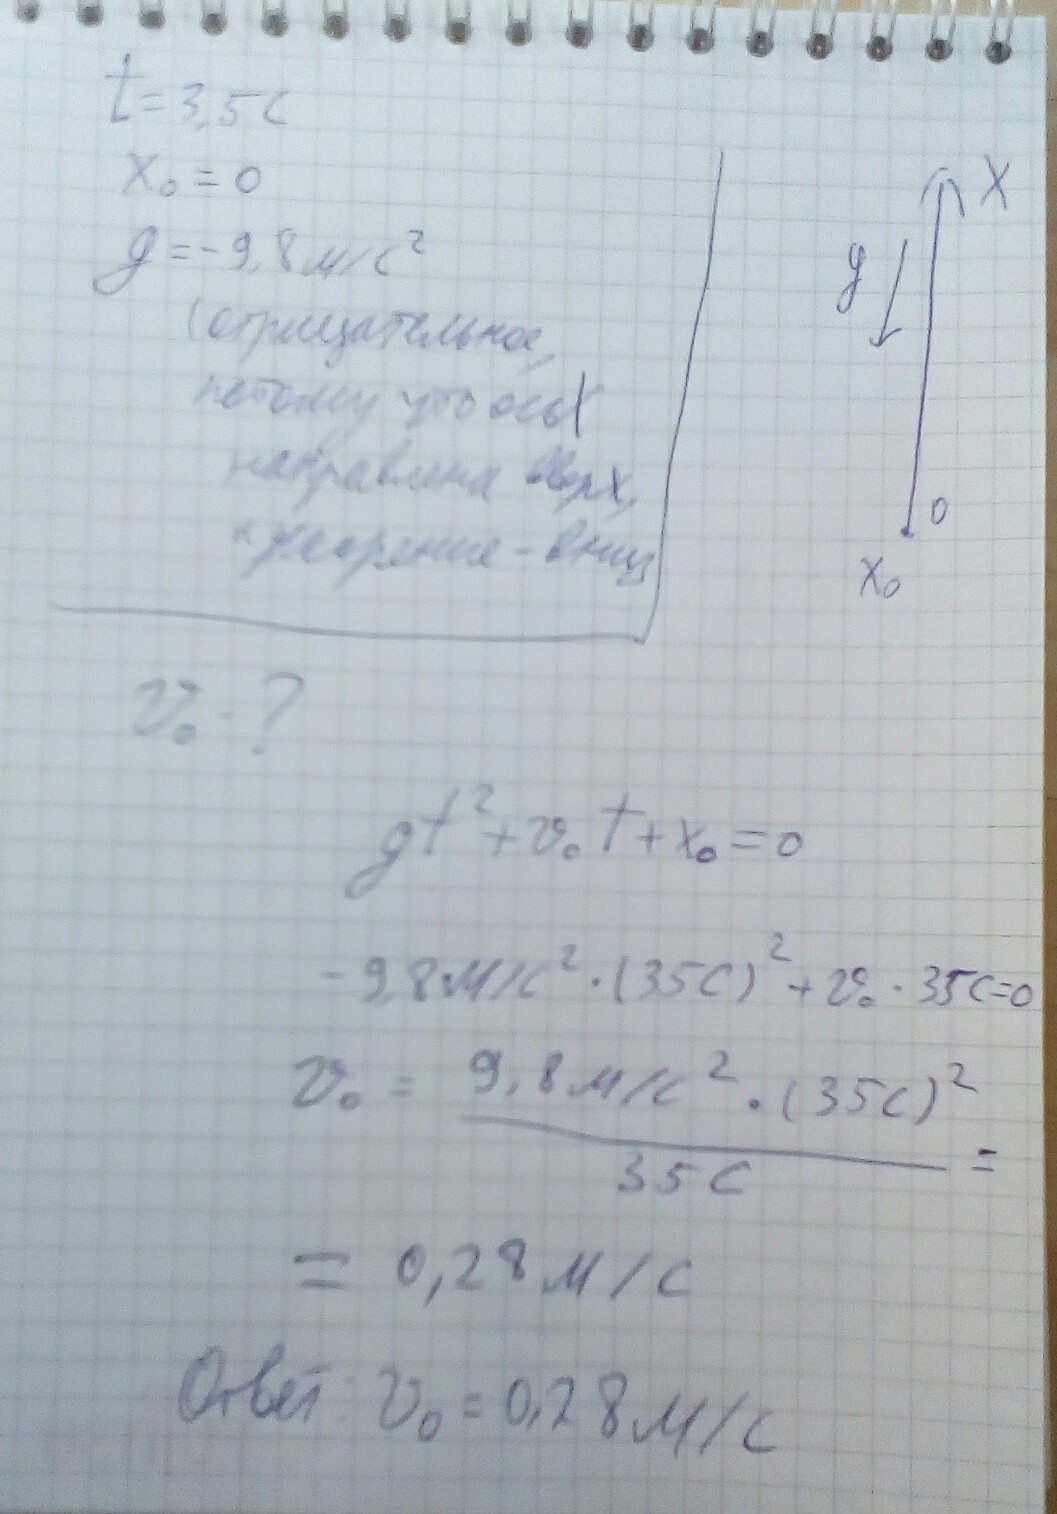 t=3,5с
x₀=0
g=-9,8м/с²
(отрицательное,
потому что ось X
направлена вверх,
ускорение - вниз
X
g
0
X₀
v₀-?
gt²+v₀t+x₀=0
-9,8м/с²·(35с)²+v₀·35с=0
v₀ = 9,8м/с²·(35с)²
=
35с
= 0,28м/с
Ответ: v₀=0,28м/с